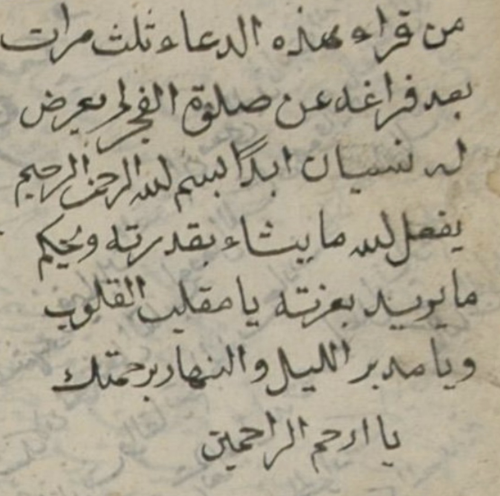 من قراء بهذه الدعاء ثلث مرات
بعد فراغه عن صلوة الفجر لم يعرض
له نسيان ابدًا بسم الله الرحمن الرحيم
يفعل الله ما يشاء بقدرته ويحكم
ما يريد بعزته يا مقلب القلوب
ويا مدبر الليل والنهار برحمتك
يا ارحم الراحمين